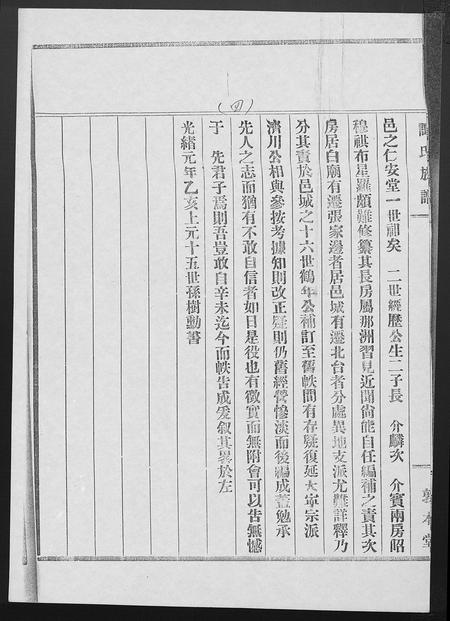 譚氏族譜
敦本堂
(四)
邑之仁安堂一世祖矣 二世經歷公生二子長 介麟次 介賓兩房昭
穆祺布星羅頗難修纂其長房屬那洲習見近聞尚能自任編補之責其次
房居白廟有遷張家邊者居邑城有遷北台者分處異地支派尤難詳釋乃
分其責於邑城之十六世鶴年公補訂至舊帙間有存疑復延大寧宗派
濟川公相與參按考據知則改正疑則仍舊經營慘淡而後編成蓋勉承
先人之志而猶有不敢自信者如日是役也有徵實而無附會可以告無憾
于 先君子焉則吾豈敢自辛未迄今而帙告成爰叙其畧於左
光緒元年乙亥上元十五世孫樹勳書